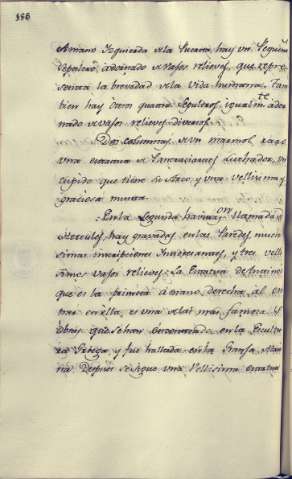 386
Amano Izquierda de la Puerta, hay un Pequeño
Sepulcro, adornado de vajos relieves, que repre-
senta la brevedad de la vida humana. Tam-
bien hay otros quatro Sepulcros, igualm.te ador
nado de vajos relieves diversos.
Dos columnas de un marmol raro
una estatua de Luchador, un
cupido que tiene su Arco, y una vellisima y
graciosa musa.
En la Segunda havitac.on llamada de
Hercules, hay gravadas en las Paredes much
simas inscripciones Interesantes, y tres velli
simos vajos relieves. La Estatua de Antinoo
que es la primera á mano derecha, al en
trar en ella, es una de las mas famosas
obras que se han encontrado en la Escultu
ra Griega y fue hallada en la
Despues se sigue una Vellisima estatua